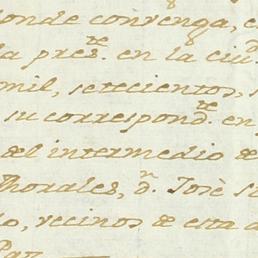 donde convenga, e
la pres.te en la ciu.d
mil, setecientos, s
su correspond.te en
del intermedio de
Morales, d.n José
o, vecinos de esta
Paz